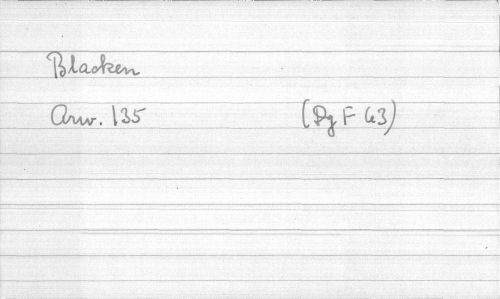 Blacken
Arw. 135 (Dg F 63)